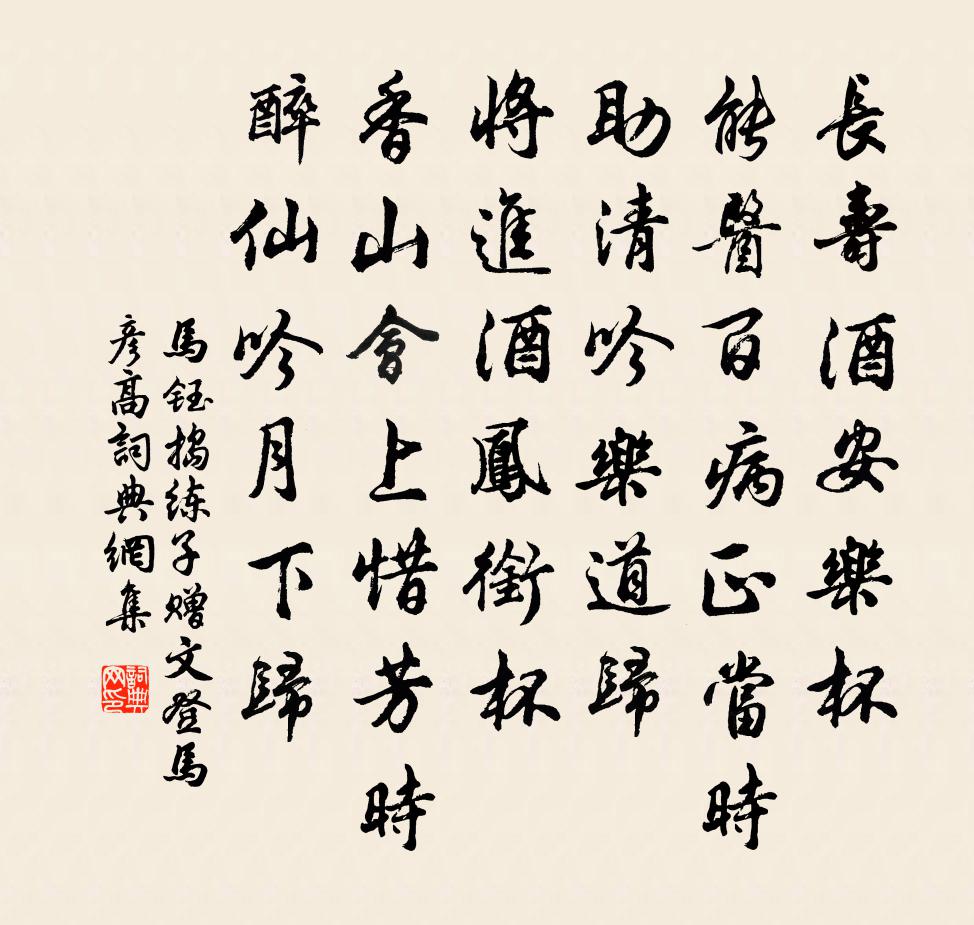 長壽酒安樂杯
能醫百病正當時
助清吟樂道歸
將進酒鳳銜杯
香山會上惜芳時
醉仙吟月下歸
馬鈺搗练子赠文登馬
彥高詞典網集
詞典
网印